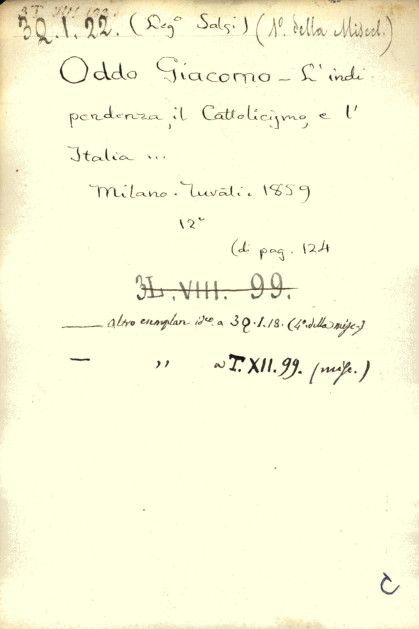 3Q.I.22. (Leg.º Salsi) (1º. della Miscel.)
Oddo Giacomo – L'indi
pendenza, il Cattolicismo, e l'
Italia ...
Milano. Turati. 1859
12º
(di pag. 124
3L.VIII.99.
— altro esemplare id.co a 3Q.I.18. (4º. della misc.)
— ,, a T.XII.99. (misc.)
C